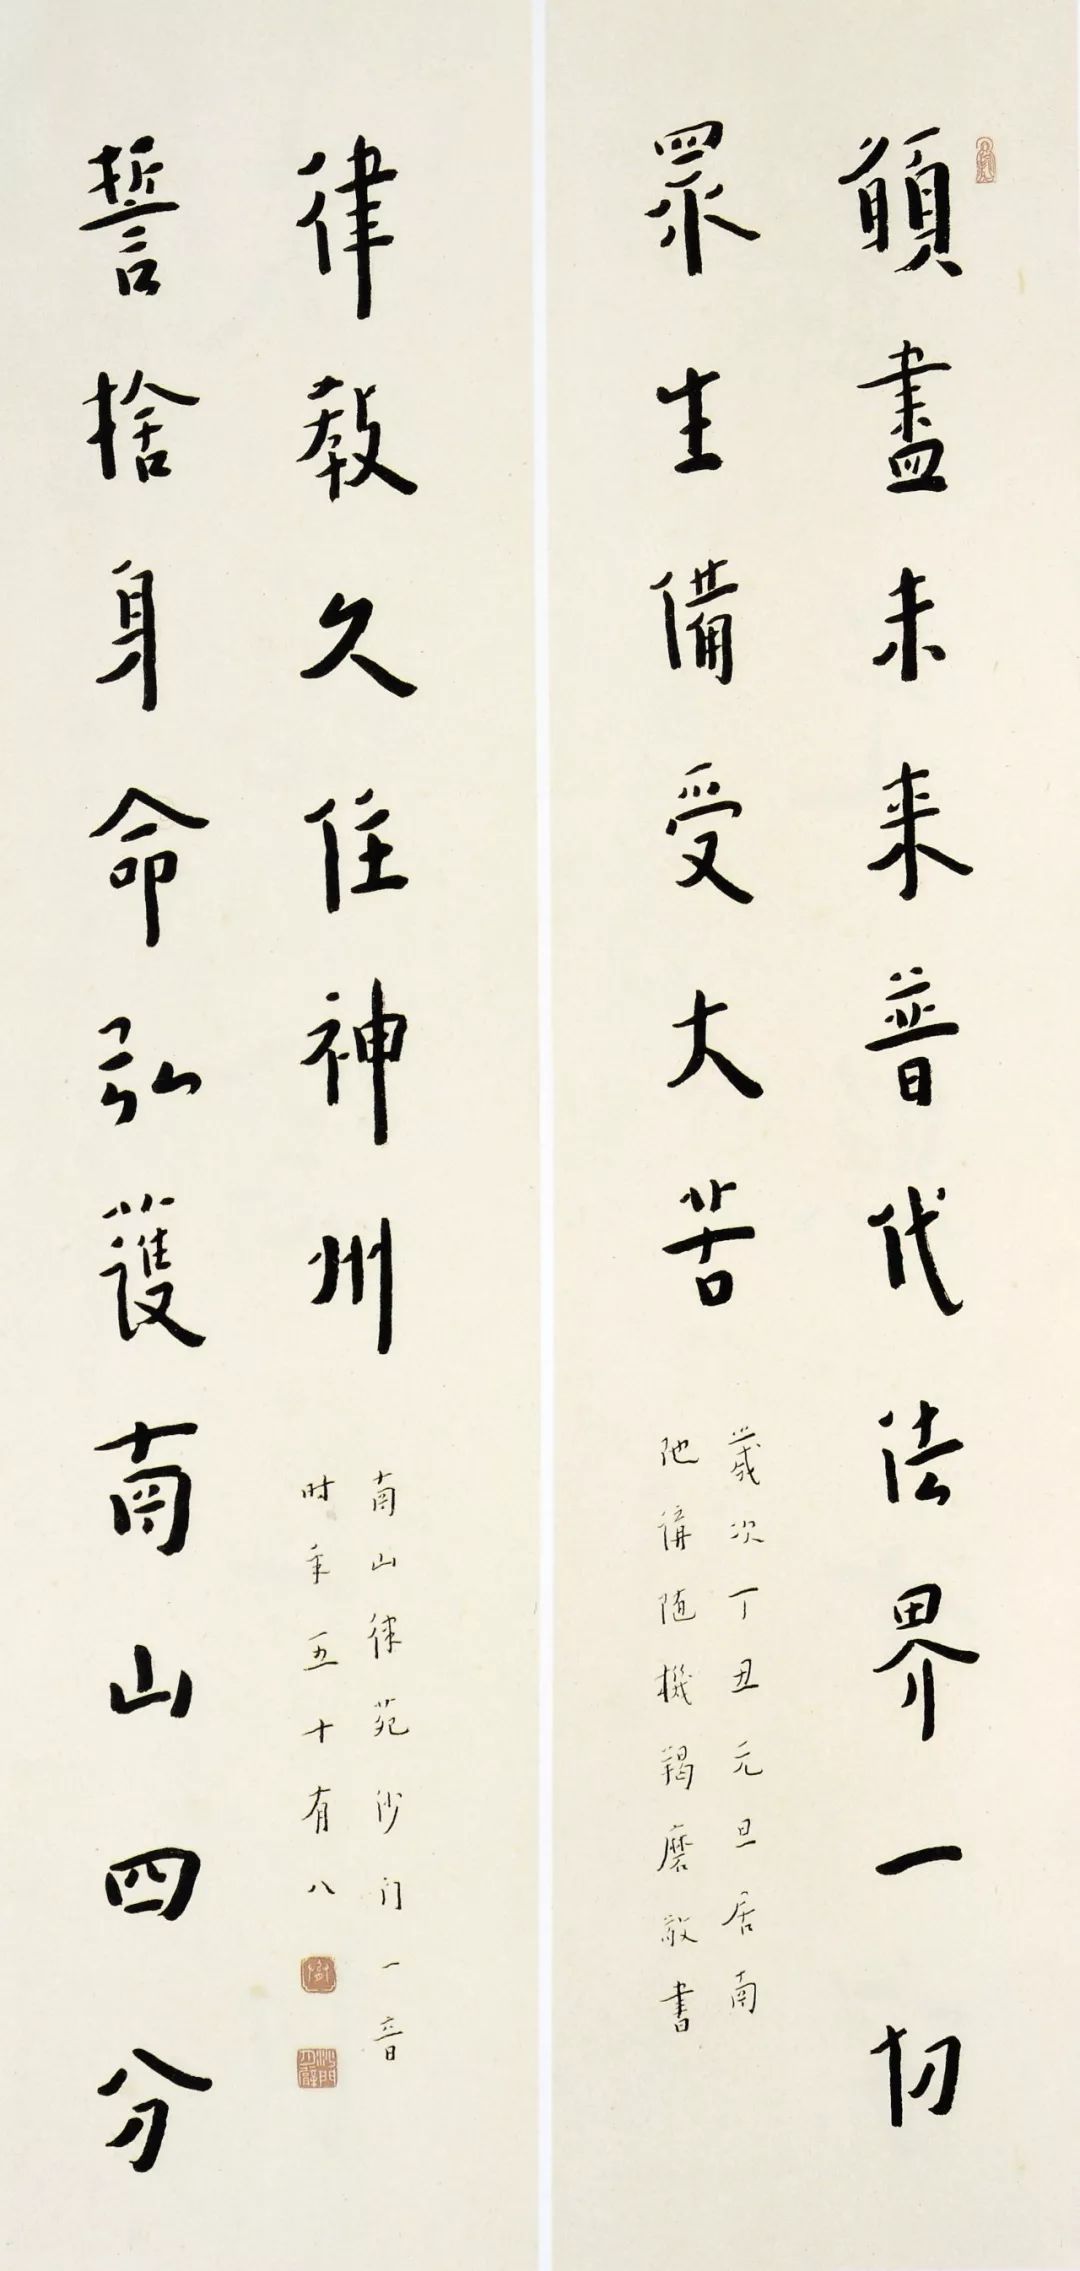 願盡未来普代法界一切
眾生備受大苦
歲次丁丑元旦居南
陁講随機羯磨敬書
誓捨身命弘護南山四分
律教久住神州
南山律苑沙门一音
时年五十有八
沙門月臂